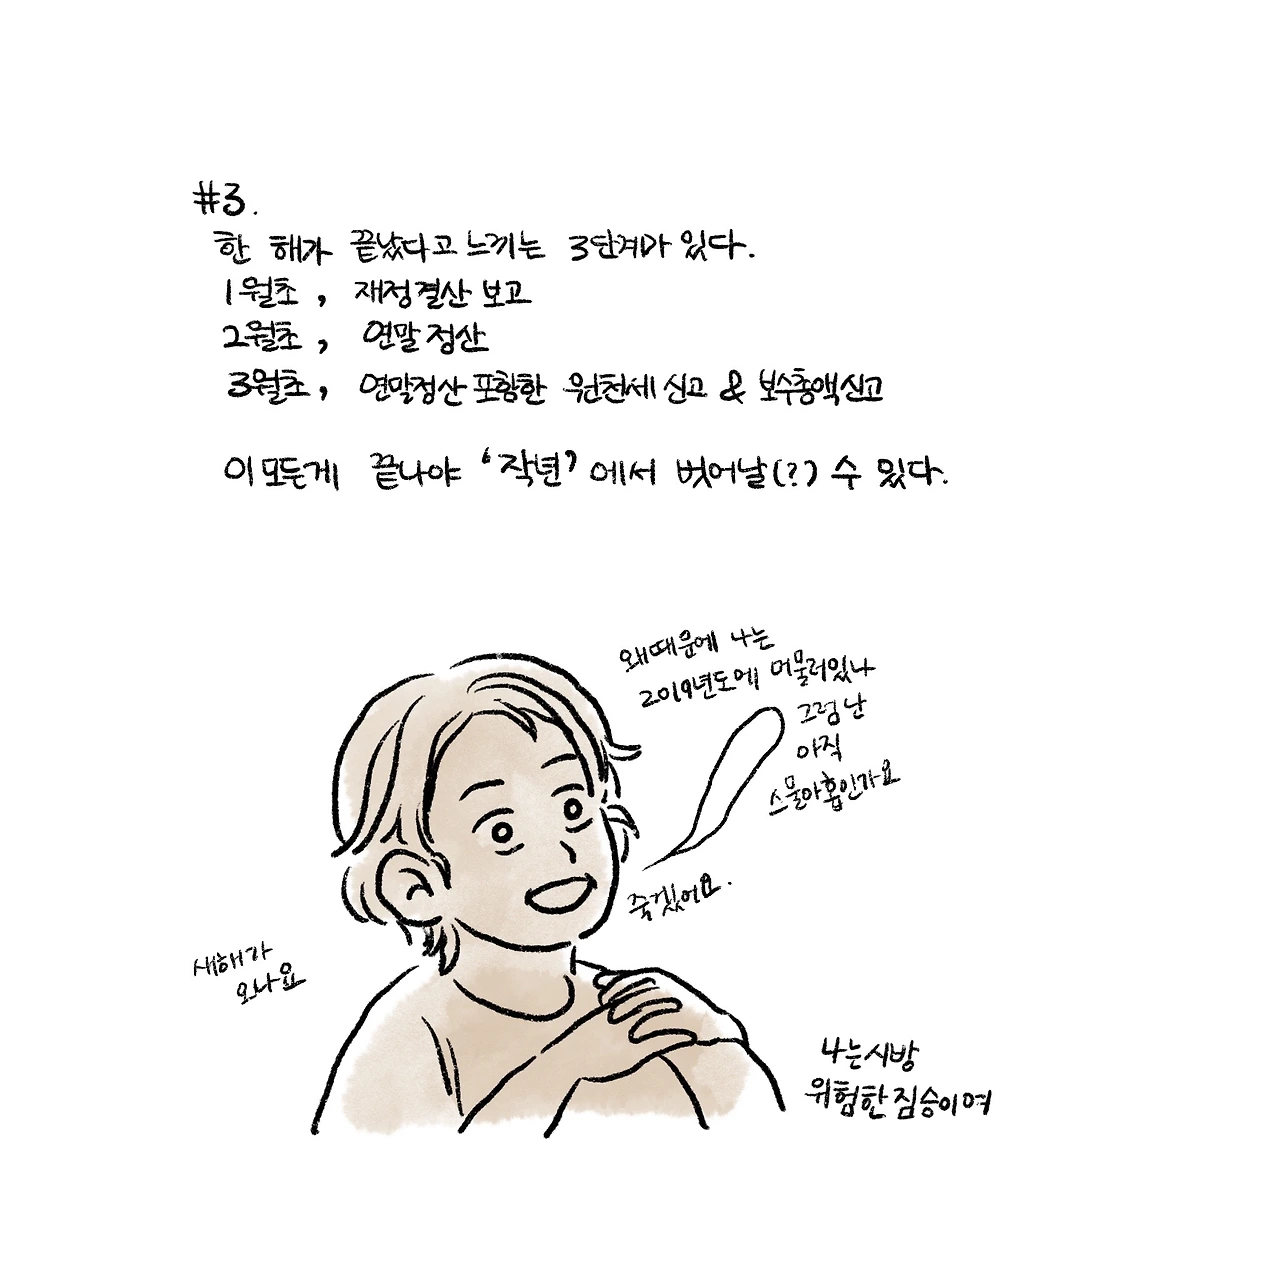 #3.
한 해가 끝났다고 느끼는 3단계가 있다.
1월초, 재정결산 보고
2월초, 연말정산
3월초, 연말정산 포함한 원천세 신고 & 보수총액신고
이 모든게 끝나야 '작년'에서 벗어날(?) 수 있다.
왜때문에 나는
2019년도에 머물러있나
그럼 난
아직
스물아홉인가요
죽겠어요.
새해가
오나요
나는 시방
위험한 짐승이여